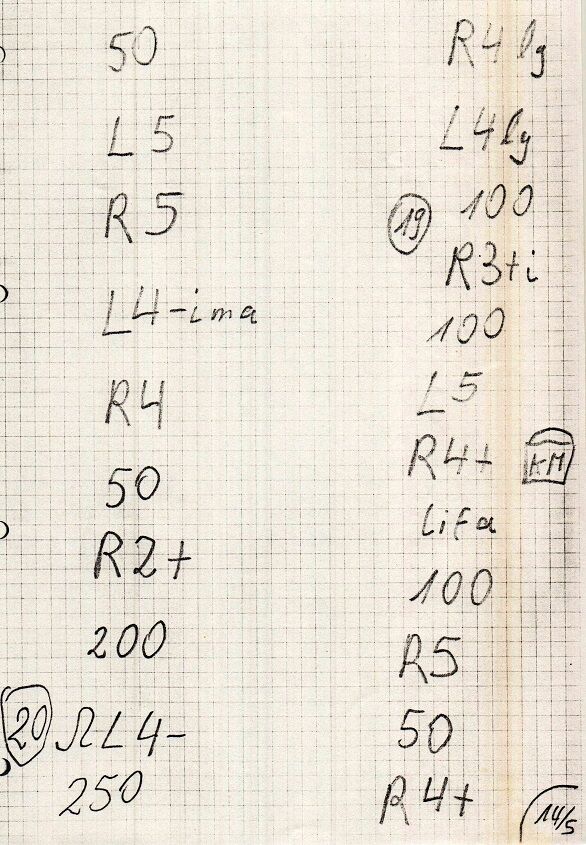 50
L5
R5
L4-ima
R4
50
R2+
200
20 Ω L4-
250
R4 lg
L4 lg
19 100
R3+i
100
L5
R4+ KM
lifa
100
R5
50
R4+
14/5